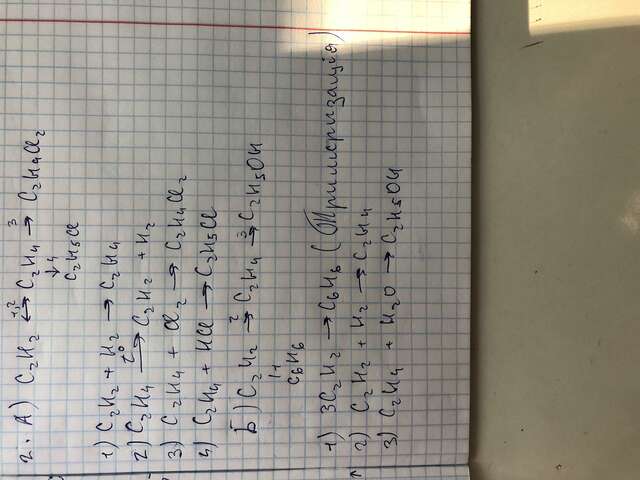 2. А) C₂H₂ ⟷ C₂H₄ → C₂H₄Cl₂
1,2 3
↓4
C₂H₅Cl
1) C₂H₂ + H₂ → C₂H₄
2) C₂H₄ → C₂H₂ + H₂
t°
3) C₂H₄ + Cl₂ → C₂H₄Cl₂
4) C₂H₄ + HCl → C₂H₅Cl
Б) C₂H₂ → C₂H₄ → C₂H₅OH
2 3
1↓
C₆H₆
1) 3C₂H₂ → C₆H₆ (тримеризація)
2) C₂H₂ + H₂ → C₂H₄
3) C₂H₄ + H₂O → C₂H₅OH